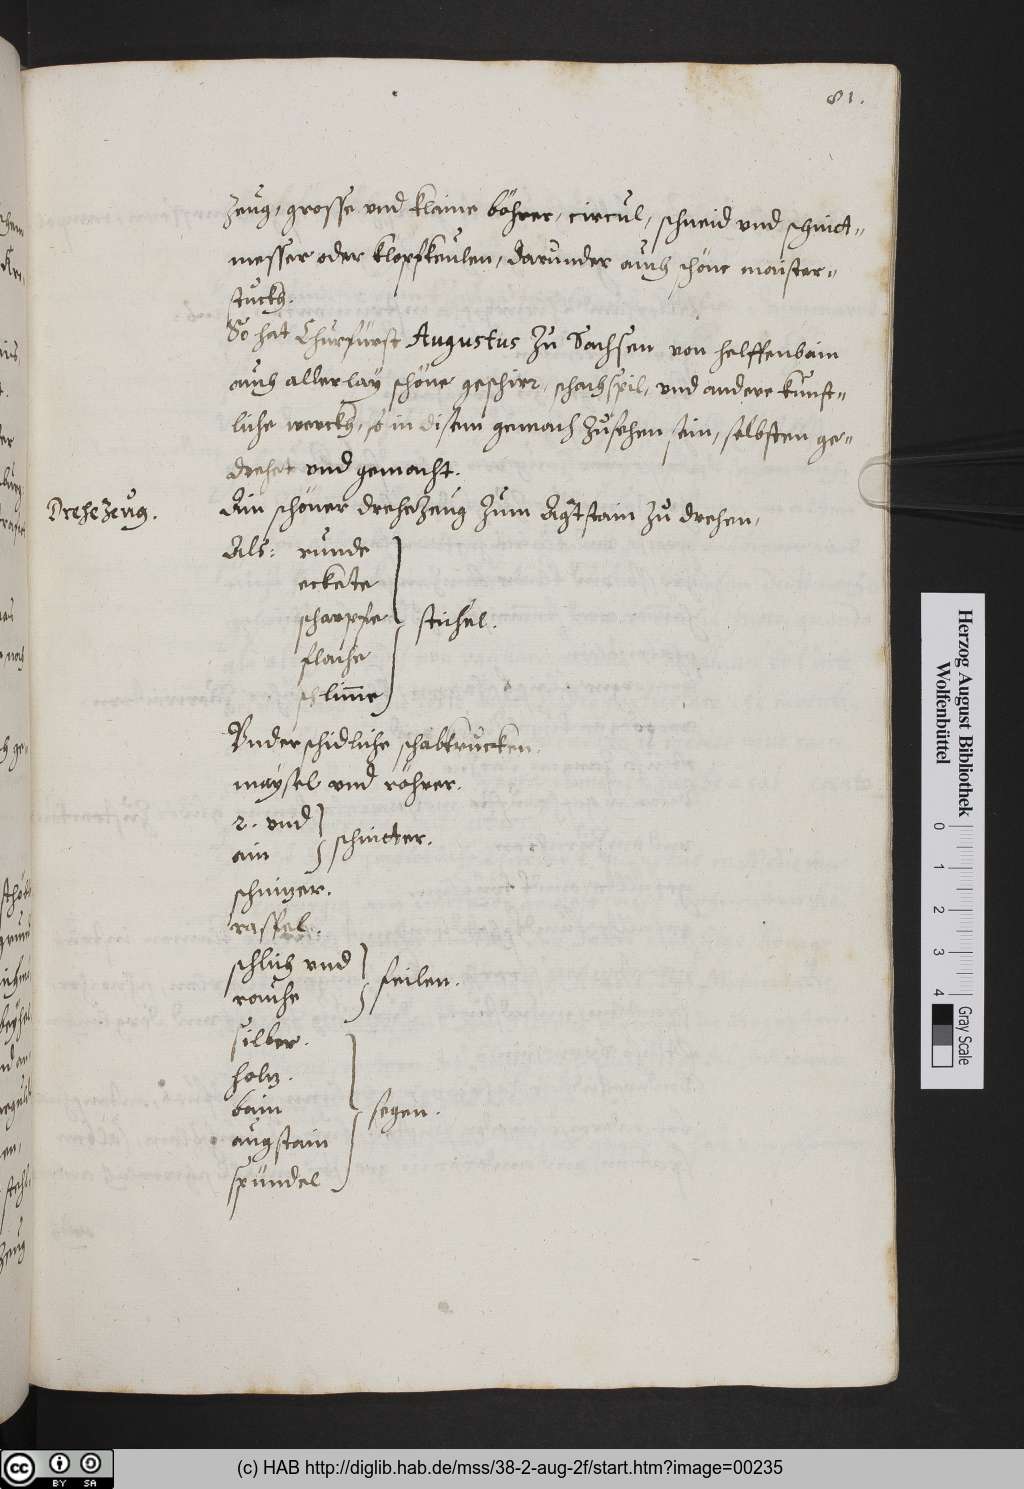 81.
zeug, grosse vnd klaine böhrer, circul, schneid vnd schnitt-
messer oder klopfkeulen, darunder auch schöne maister-
stuckh.
So hat Churfürst Augustus zu Sachsen von helffenbain
auch allerlay schöne geschirr, schachspil, vnd andere kunst-
liche werckh, so in disem gemach zusehen sein, selbsten ge-
drehet vnd gemacht.
Drehezeug.
Ain schöner drehezeug zum Agtstain zu drehen,
Als: runde
eckete
scharpfe
stichel.
flache
schlim̄e
Vnderschidliche schabtrucken.
maysel vnd röhrer.
2. vnd
ain
schnitter.
schnizer.
raspel.
schlich vnd
rauche
feilen.
silber.
holz.
bain
augstain
spündel
segen.
Herzog August Bibliothek
Wolfenbüttel
0 1 2 3 4
Gray Scale
cc BY SA
(c) HAB http://diglib.hab.de/mss/38-2-aug-2f/start.htm?image=00235